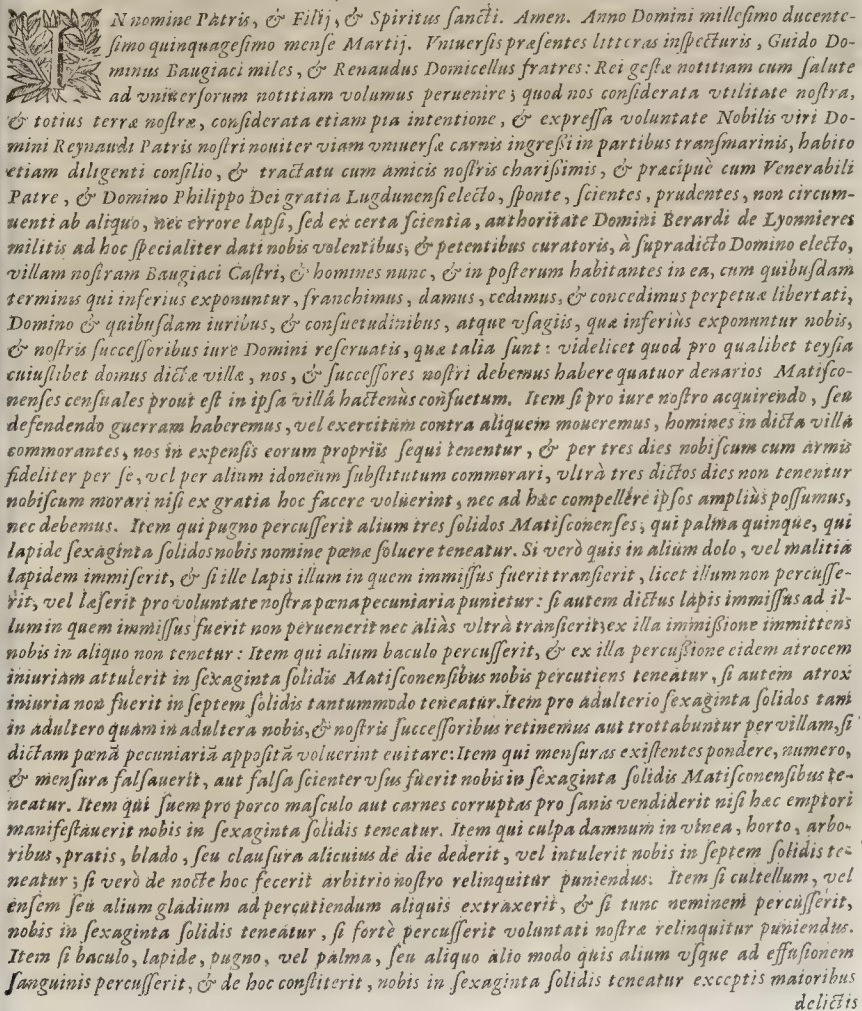 IN nomine Patris, & Filij, & Spiritus sancti. Amen. Anno Domini millesimo ducente-
simo quinquagesimo mense Martij. Vniuersis præsentes litteras inspecturis, Guido Do-
minus Baugiaci miles, & Renaudus Domicellus fratres: Rei gestæ notitiam cum salute
ad vniuersorum notitiam volumus peruenire; quod nos considerata vtilitate nostra,
& totius terræ nostræ, considerata etiam pia intentione, & expressa voluntate Nobilis viri Do-
mini Reynaudi Patris nostri nouiter viam vniuersæ carnis ingressi in partibus transmarinis, habito
etiam diligenti consilio, & tractatu cum amicis nostris charissimis, & præcipuè cum Venerabili
Patre, & Domino Philippo Dei gratia Lugdunensi electo, sponte, scientes, prudentes, non circum-
uenti ab aliquo, nec errore lapsi, sed ex certa scientia, authoritate Domini Berardi de Lyonnieres
militis ad hoc specialiter dati nobis volentibus, & petentibus curatoris, à supradicto Domino electo,
villam nostram Baugiaci Castri, & homines nunc, & in posterum habitantes in ea, cum quibusdam
terminis qui inferius exponuntur, franchimus, damus, cedimus, & concedimus perpetuæ libertati,
Domino & quibusdam iuribus, & consuetudinibus, atque vsagiis, quæ inferiùs exponuntur nobis,
& nostris successoribus iure Domini reseruatis, quæ talia sunt: videlicet quod pro qualibet teysia
cuiuslibet domus dictæ villæ, nos, & successores nostri debemus habere quatuor denarios Matisco-
nenses censuales prout est in ipsa villâ hactenùs consuetum. Item si pro iure nostro acquirendo, seu
defendendo guerram haberemus, vel exercitum contra aliquem moueremus, homines in dicta villa
commorantes, nos in expensis eorum propriis sequi tenentur, & per tres dies nobiscum cum armis
fideliter per se, vel per alium idoneum substitutum commorari, vltrà tres dictos dies non tenentur
nobiscum morari nisi ex gratia hoc facere voluerint, nec ad hæc compellere ipsos ampliùs possumus,
nec debemus. Item qui pugno percusserit alium tres solidos Matisconenses, qui palma quinque, qui
lapide sexaginta solidos nobis nomine pœnæ soluere teneatur. Si verò quis in alium dolo, vel malitia
lapidem immiserit, & si ille lapis illum in quem immissus fuerit transierit, licet illum non percusse-
rit, vel læserit pro voluntate nostra pœna pecuniaria punietur: si autem dictus lapis immissus ad il-
lum in quem immissus fuerit non peruenerit nec aliàs vltrà transierit; ex illa immissione immittens
nobis in aliquo non tenetur: Item qui alium baculo percusserit, & ex illa percussione eidem atrocem
iniuriam attulerit in sexaginta solidis Matisconensibus nobis percutiens teneatur, si autem atrox
iniuria non fuerit in septem solidis tantummodo teneatur. Item pro adulterio sexaginta solidos tam
in adultero quàm in adultera nobis, & nostris successoribus retinemus aut trottabuntur per villam, si
dictam pœnã pecuniariã appositã voluerint euitare: Item qui mensuras existentes pondere, numero,
& mensura falsauerit, aut falsa scienter vsus fuerit nobis in sexaginta solidis Matisconensibus te-
neatur. Item qui suem pro porco masculo aut carnes corruptas pro sanis vendiderit nisi hæc emptori
manifestauerit nobis in sexaginta solidis teneatur. Item qui culpa damnum in vinea, horto, arbo-
ribus, pratis, blado, seu clausura alicuius de die dederit, vel intulerit nobis in septem solidis te-
neatur; si verò de nocte hoc fecerit arbitrio nostro relinquitur puniendus. Item si cultellum, vel
ensem seu alium gladium ad percutiendum aliquis extraxerit, & si tunc neminem percusserit,
nobis in sexaginta solidis teneatur, si fortè percusserit voluntati nostræ relinquitur puniendus.
Item si baculo, lapide, pugno, vel palma, seu aliquo alio modo quis alium vsque ad effusionem
sanguinis percusserit, & de hoc constiterit, nobis in sexaginta solidis teneatur exceptis maioribus
delictis